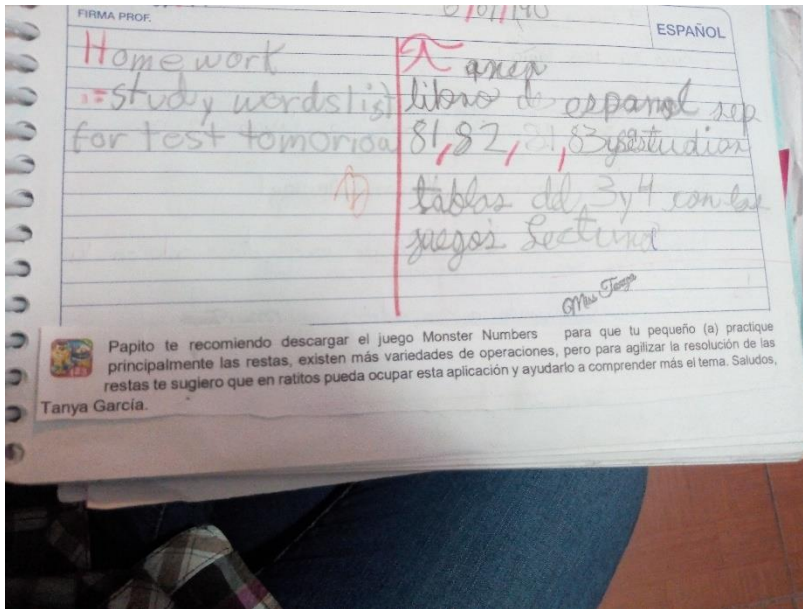 FIRMA PROF.
ESPAÑOL
Homework
=study words list
for test tomorrow
Tarea
libro de español sep
81,82, 81,83 y estudiar
tablas del 3 y 4 con los
juegos Lectura
Miss Tanya
Papito te recomiendo descargar el juego Monster Numbers para que tu pequeño (a) practique
principalmente las restas, existen más variedades de operaciones, pero para agilizar la resolución de las
restas te sugiero que en ratitos pueda ocupar esta aplicación y ayudarlo a comprender más el tema. Saludos,
Tanya García.